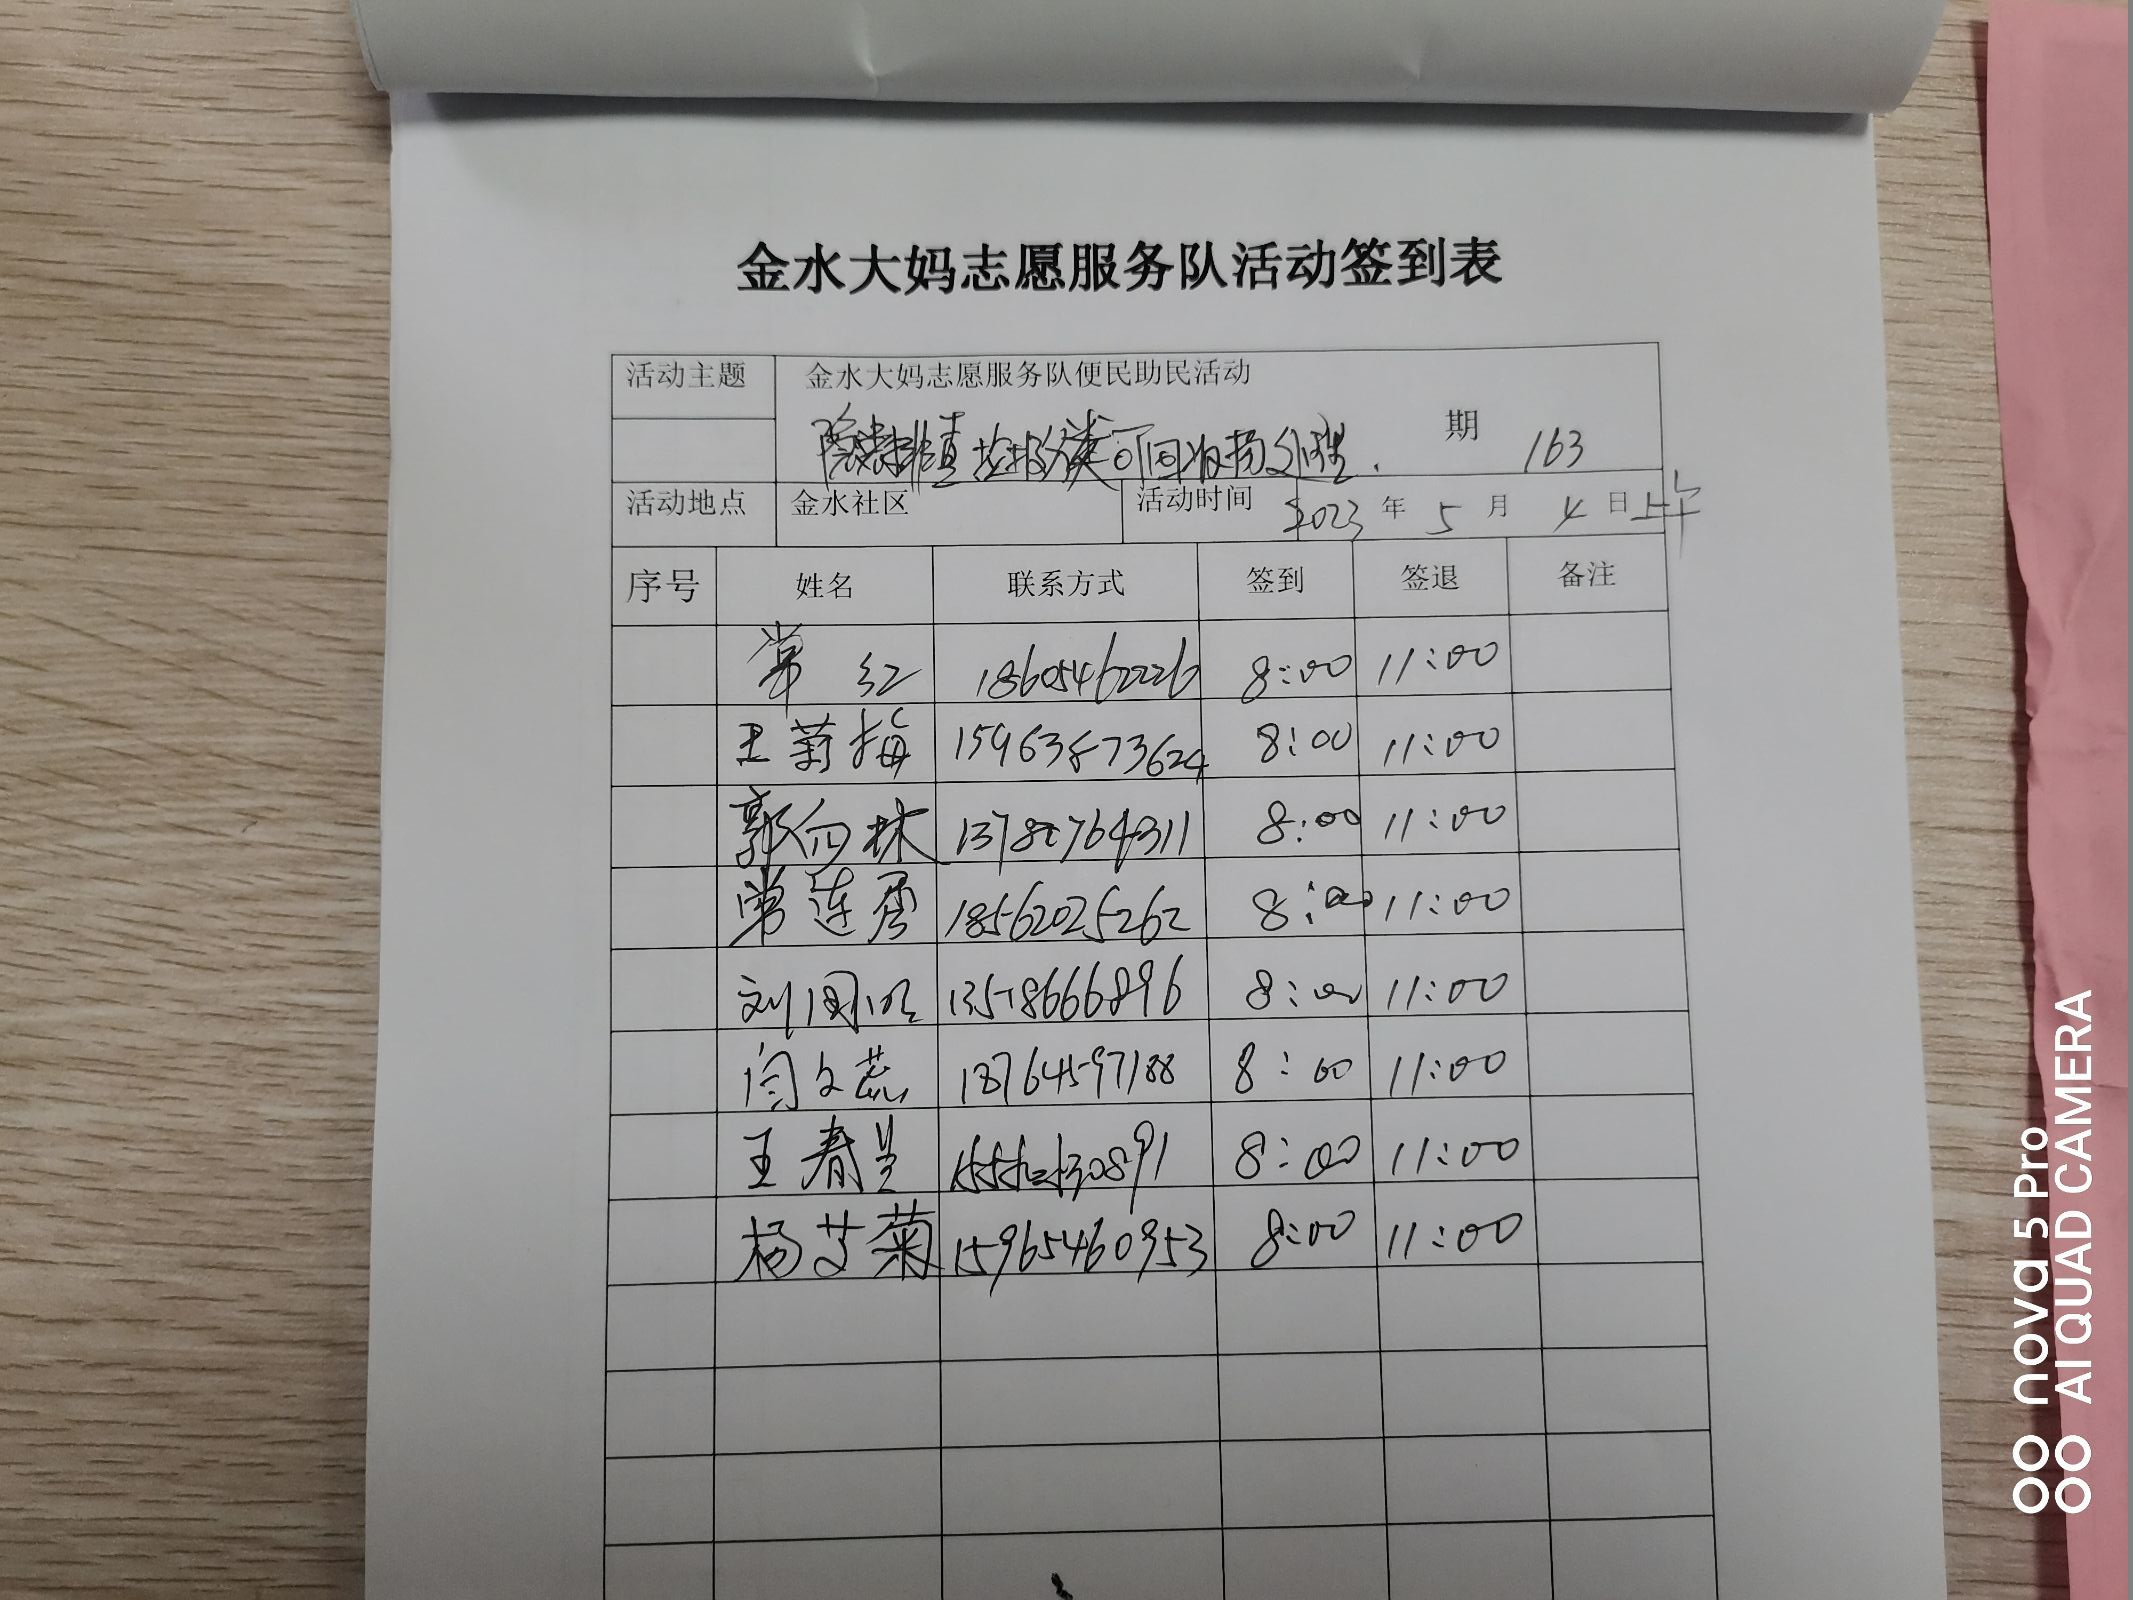 金水大妈志愿服务队活动签到表
活动主题 金水大妈志愿服务队便民助民活动
隐患排查 垃圾分类可回收物处理. 期 163
活动地点 金水社区 活动时间 2023 年 5 月 4 日 上午
序号 姓名 联系方式 签到 签退 备注
常 红 18605462226 8:00 11:00
王菊梅 15963873624 8:00 11:00
郭向林 8:00 11:00
常连秀 18562025262 8:00 11:00
刘国明 8:00 11:00
闫文蕊 18764597188 8:00 11:00
王春兰 8:00 11:00
杨艾菊 15965460953 8:00 11:00
nova 5 Pro
AI QUAD CAMERA